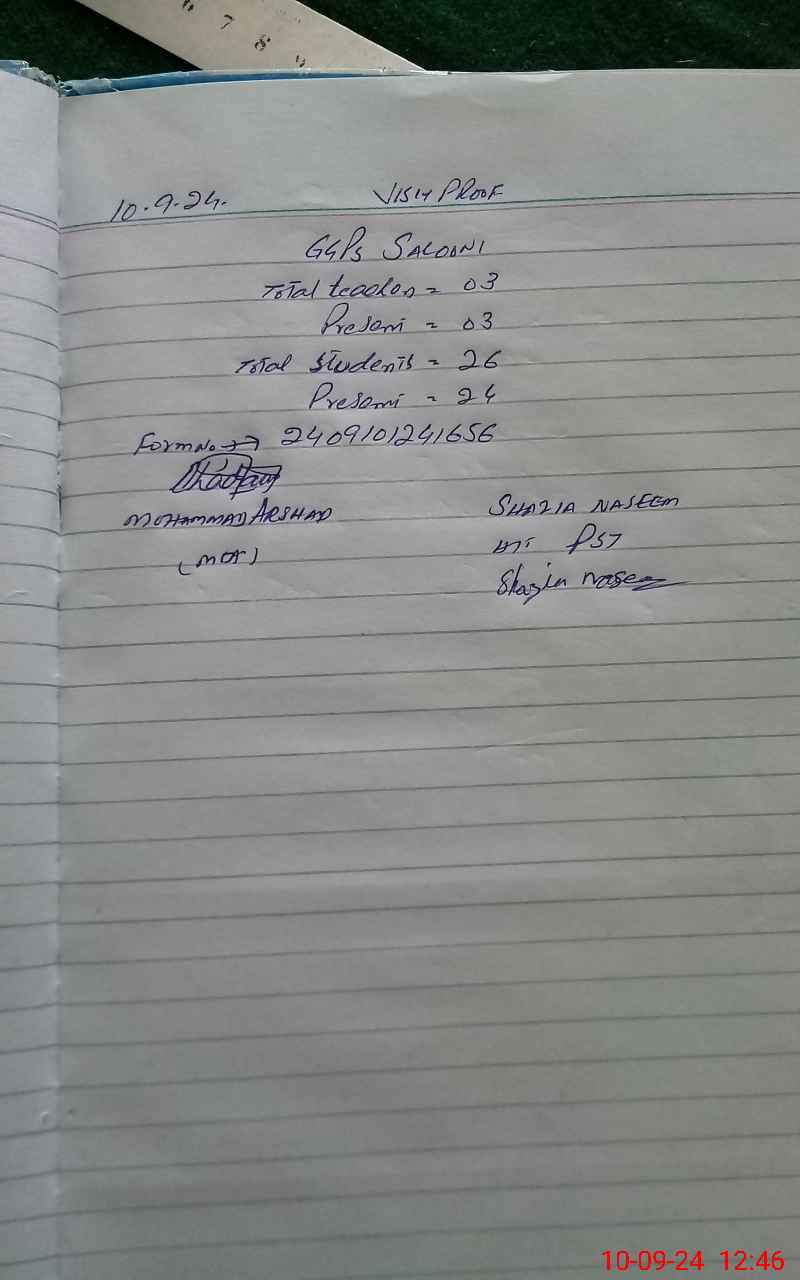 6 7 8 9
10.9.24. VISIT PROOF
GGPS SALOONI
Total teachers = 03
Present = 03
Total Students = 26
Present = 24
Form No. → 2409101241656
MOHAMMAD ARSHAD SHAZIA NASEEM
(MOT) PST
Shazia Naseem
10-09-24 12:46